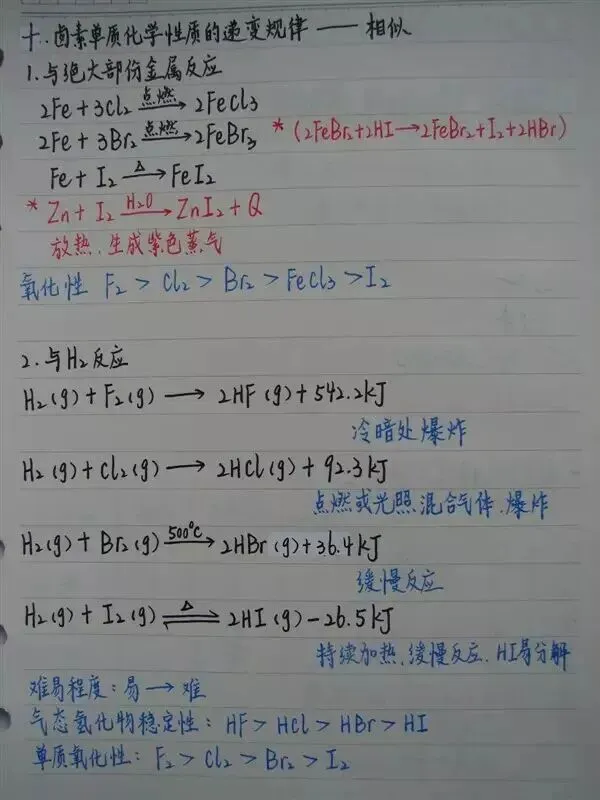 十. 卤素单质化学性质的递变规律 —— 相似
1. 与绝大部份金属反应
2Fe + 3Cl₂ 点燃→ 2FeCl₃
2Fe + 3Br₂ 点燃→ 2FeBr₃ * (2FeBr₂+2HI→2FeBr₂+I₂+2HBr)
Fe + I₂ △→ FeI₂
* Zn + I₂ H₂O→ ZnI₂ + Q
放热. 生成紫色蒸气
氧化性 F₂ > Cl₂ > Br₂ > FeCl₃ > I₂
2. 与H₂反应
H₂(g) + F₂(g) → 2HF(g) + 542.2kJ
冷暗处爆炸
H₂(g) + Cl₂(g) → 2HCl(g) + 92.3kJ
点燃或光照 混合气体. 爆炸
H₂(g) + Br₂(g) 500°C→ 2HBr(g) + 36.4kJ
缓慢反应
H₂(g) + I₂(g) △⇌ 2HI(g) - 26.5kJ
持续加热. 缓慢反应. HI易分解
难易程度: 易→难
气态氢化物稳定性: HF > HCl > HBr > HI
单质氧化性: F₂ > Cl₂ > Br₂ > I₂